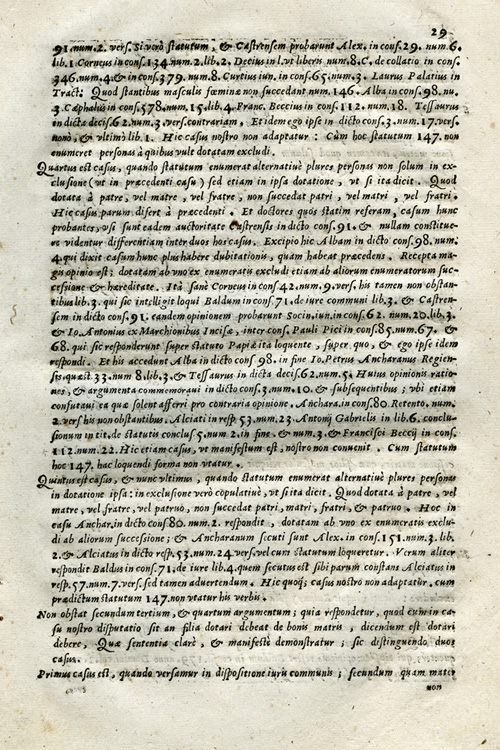 29
91. num. 2. vers. Si verò statutum, & Castrensem probarunt Alex. in cons. 29. num. 6.
lib. 1 Corneus in cons. 134. num. 2. lib. 2. Decius in l. vt liberis num. 8. C. de collatio in cons.
346. num. 4. & in cons. 379. num. 8. Curtius iun. in cons. 65. num. 3. Laurus Palatius in
Tract: Quod stantibus masculis fœminæ non succedant num. 146. Alba in cons. 98. nu.
3. Cæphalus in cons. 578. num. 15. lib. 4. Franc. Beccius in cons. 112. num. 18. Tessaurus
in dicta decis. 62. num. 3. vers. contrariam, Et idem ego ipse in dicto cons. 3. num. 17. vers.
nonò, & vltimò lib. 1. Hic casus nostro non adaptatur: Cùm hoc statutum 147. non
enumeret personas à quibus vult dotatam excludi.
Quartus est casus, quando statutum enumerat alternatiuè plures personas non solum in ex-
clusione (vt in præcedenti casu) sed etiam in ipsa dotatione, vt si ita dicit. Quod
dotata à patre, vel matre, vel fratre, non succedat patri, vel matri, vel fratri.
Hic casus parum disert à præcedenti. Et doctores quos statim referam, casum hunc
probantes, vsi sunt eadem auctoritate Castrensis in dicto cons. 91. & nullam constitue-
re videntur differentiam inter duos hos casus. Excipio hic Albam in dicto cons. 98. num.
4. qui dixit casum hunc plus habere dubitationis, quam habeat præcedens. Recepta ma-
gis opinio est; dotatam ab vno ex enumeratis excludi etiam ab aliorum enumeratorum suc-
cessione & hæreditate. Ità sanè Corneus in cons. 42. num. 9. vers. his tamen non obstan-
tibus lib. 3. qui sic intelligit loqui Baldum in cons. 71. de iure communi lib. 3. & Castren-
sem in dicto cons. 91. eandem opinionem probarunt Socin. iun. in cons. 62. num. 20. lib. 3.
& Io. Antonius ex Marchionibus Incisæ, inter cons. Pauli Pici in cons. 85. num. 67. &
68. qui sic responderunt super statuto Papiæ ita loquente, super quo, & ego ipse idem
respondi. Et his accedunt Alba in dicto cons. 98. in fine Io. Petrus Ancharanus Regien-
sis. quæst. 33. num. 8. lib. 3. & Tessaurus in dicta decis. 62. num. 5. Huius opinionis ratio-
nes, & argumenta commemoraui in dicto cons. 3. num. 10. & subsequentibus; vbi etiam
confutaui ea quæ solent afferri pro contraria opinione. Anchara. in cons. 80. Retento. num.
2. vers. his non obstantibus. Alciati in resp. 53. num. 23. Antonij Gabrielis in lib. 6. conclu-
sionum in tit. de statutis conclus. 5. num. 2. in fine. & num. 3. & Francisci Beccij in cons.
112. num. 22. Hic etiam casus, vt manifestum est, nostro non conuenit. Cum statutum
hoc 147. hac loquendi forma non vtatur.
Quintus est casus, & nunc vltimus, quando statutum enumerat alternatiuè plures personas
in dotatione ipsa: in exclusione verò copulatiuè, vt si ita dicit. Quod dotata à patre, vel
matre, vel fratre, vel patruo, non succedat patri, matri, fratri, & patruo. Hoc in
casu Anchar. in dicto cons. 80. num. 2. respondit, dotatam ab vno ex enumeratis exclu-
di ab aliorum successione; & Ancharanum secuti sunt Alex. in cons. 151. num. 3. lib.
2. & Alciatus in dicto resp. 53. num. 24. vers. vel cum statutum loqueretur. Verum aliter
respondit Baldus in cons. 71. de iure lib. 4. quem secutus est sibi parum constans Alciatus in
resp. 57. num. 7. vers. sed tamen aduertendum. Hic quoq; casus nostro non adaptatur, cum
prædictum statutum 147. non vtatur his verbis.
Non obstat secundum tertium, & quartum argumentum; quia respondetur, quod cum in ca-
su nostro disputatio sit an filia dotari debeat de bonis matris, dicendum est dotari
debere, Quæ sententia clarè, & manifestè demonstratur; sic distinguendo duos
casus.
Primus casus est, quando versamur in dispositione iuris communis; secundum quam mater
non